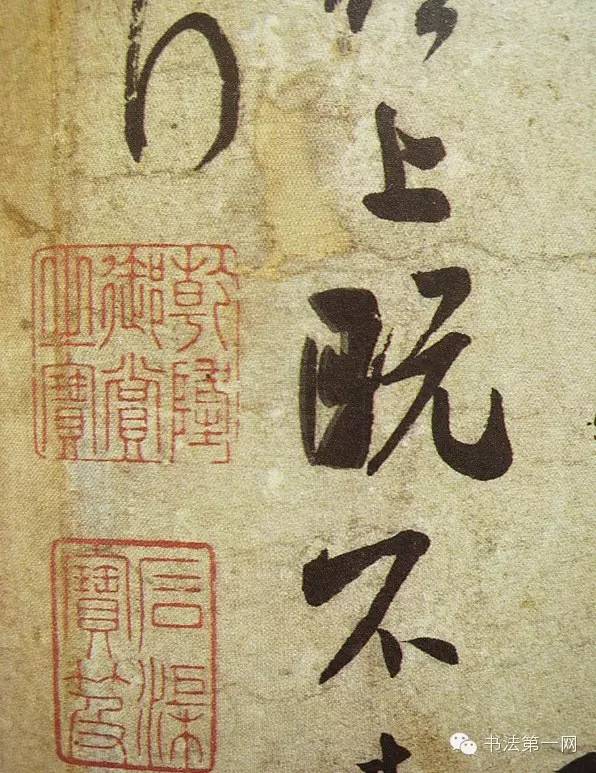 上既不
乾隆御賞之寶
石渠寶笈
书法第一网